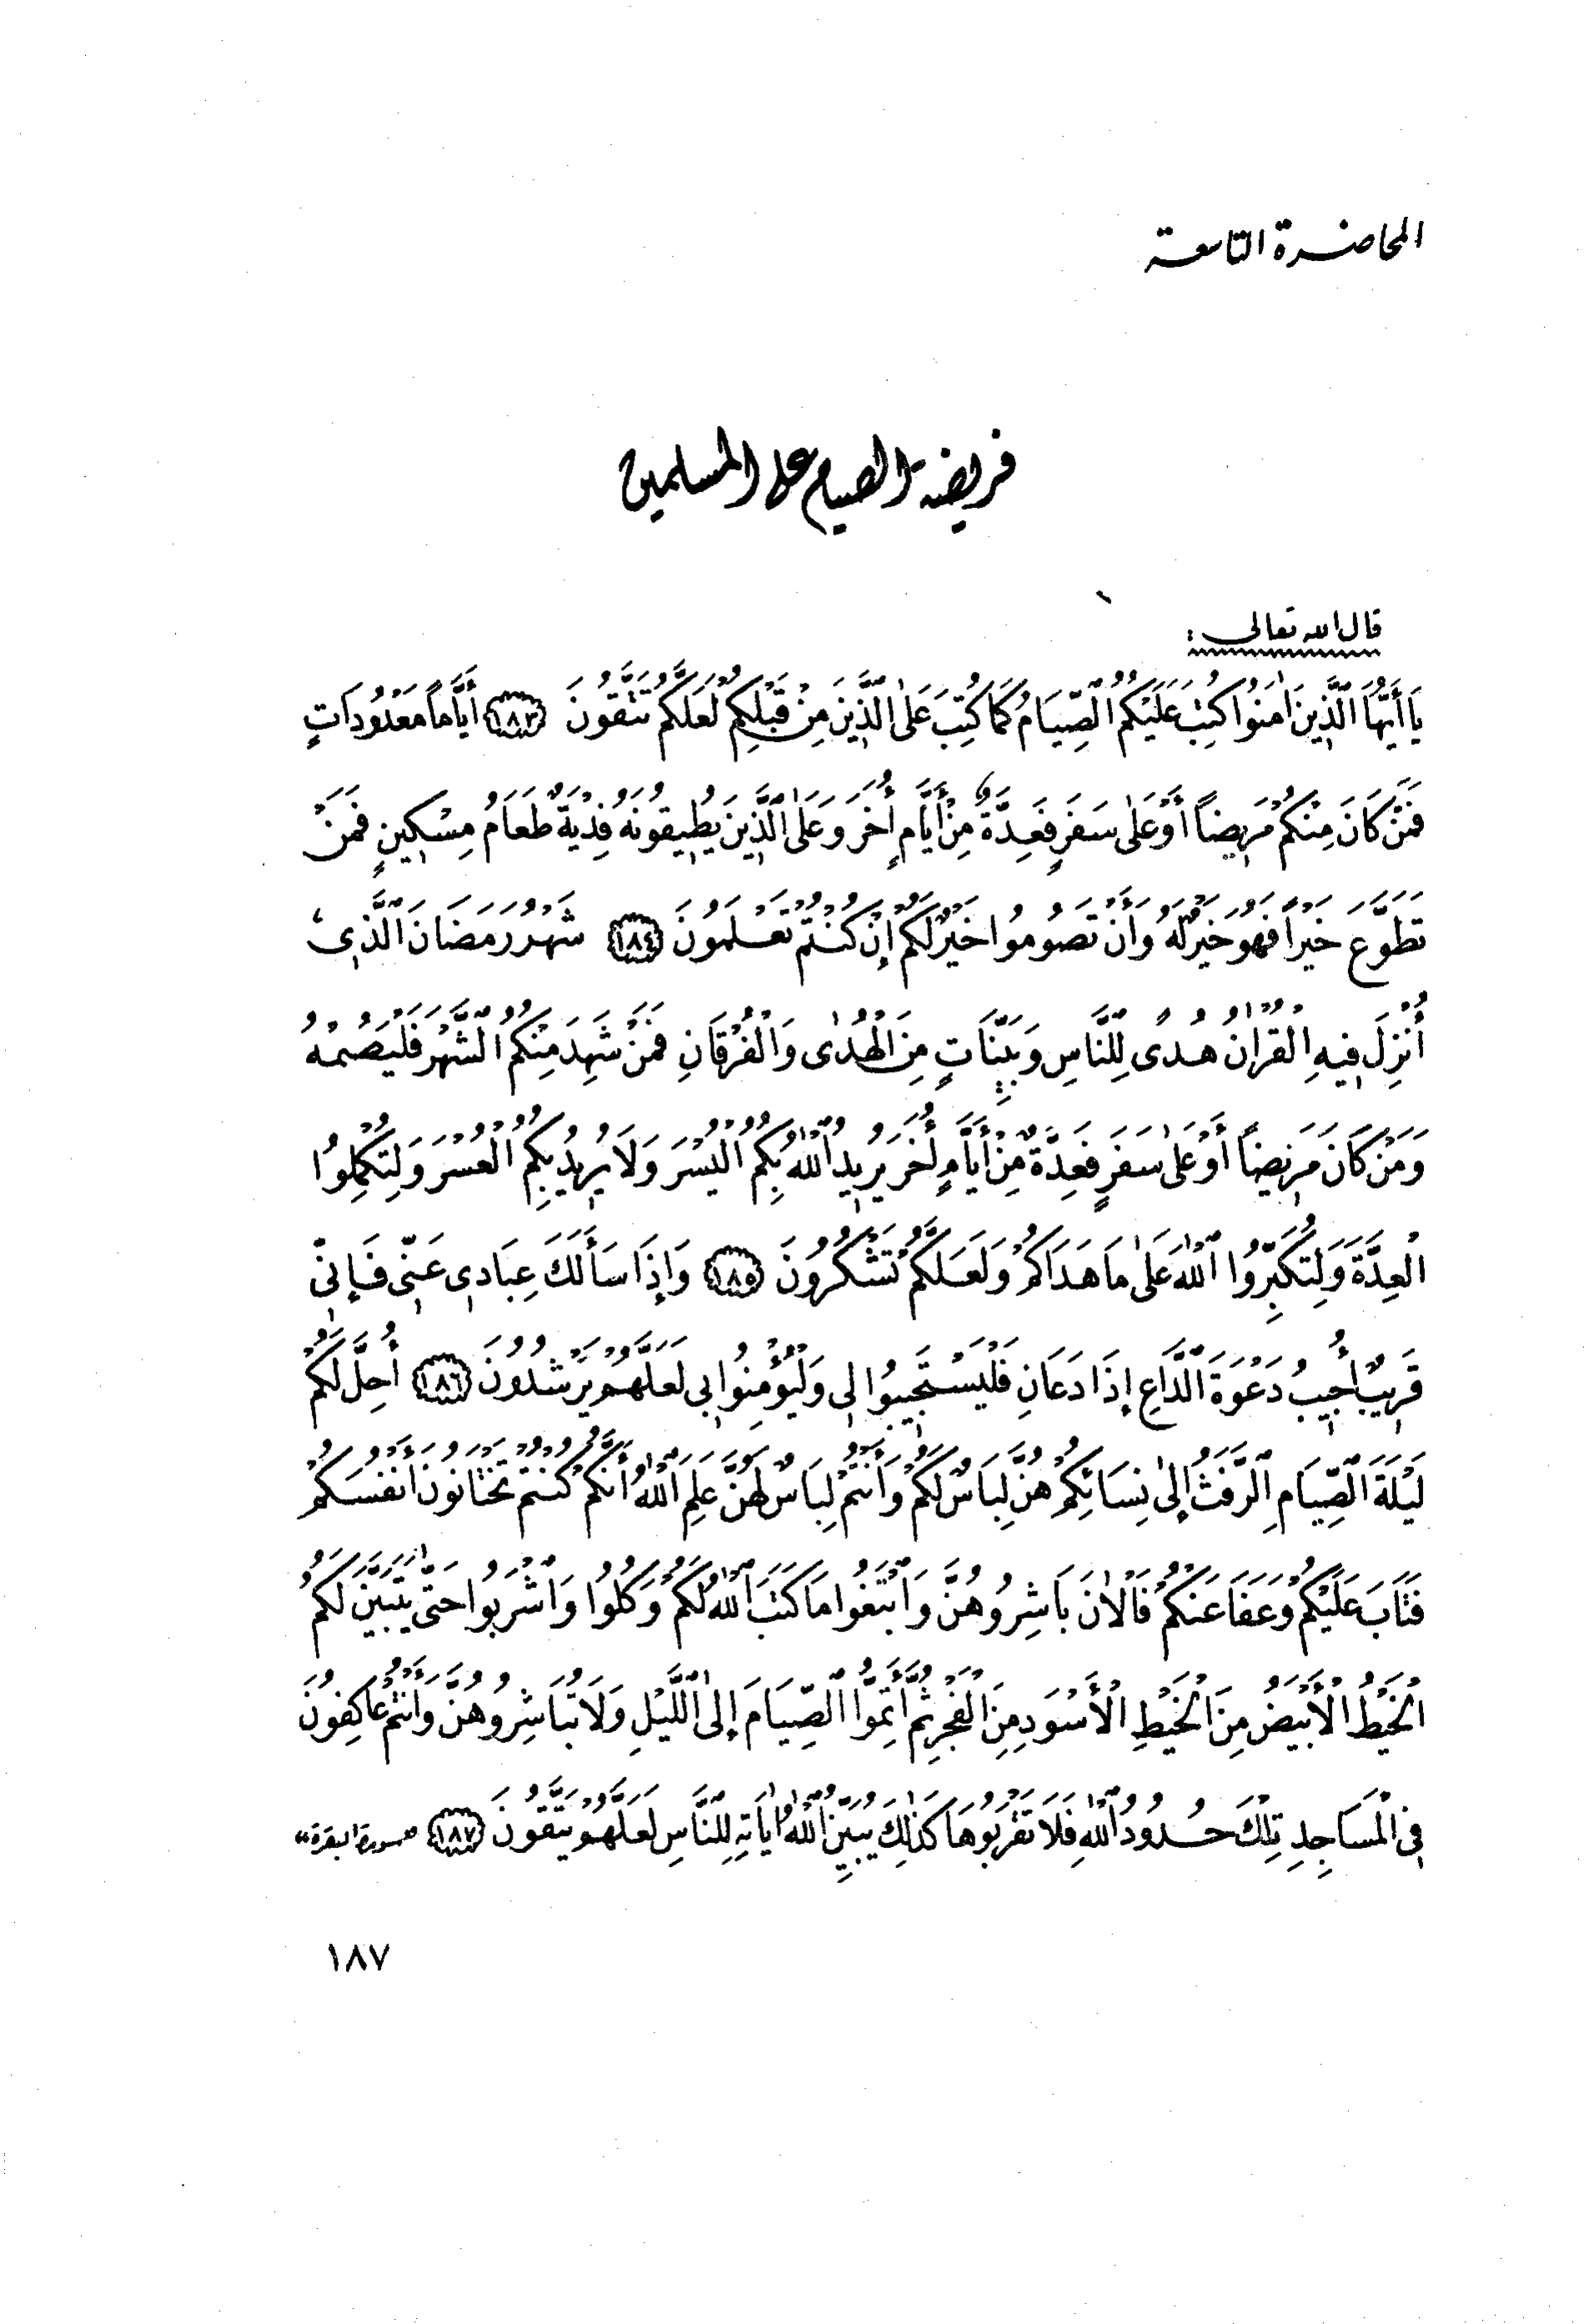 المحاضرة التاسعة
فريضة الصيام على المسلمين
قال الله تعالى :
يَا أَيُّهَا الَّذِينَ اٰمَنُوا كُتِبَ عَلَيْكُمُ الصِّيَامُ كَمَا كُتِبَ عَلَى الَّذِينَ مِنْ قَبْلِكُمْ لَعَلَّكُمْ تَتَّقُونَ ١٨٣ أَيَّاماً مَعْدُودَاتٍ
فَمَنْ كَانَ مِنْكُمْ مَرِيضاً أَوْ عَلٰى سَفَرٍ فَعِدَّةٌ مِنْ أَيَّامٍ أُخَرَ وَعَلَى الَّذِينَ يُطِيقُونَهُ فِدْيَةٌ طَعَامُ مِسْكِينٍ فَمَنْ
تَطَوَّعَ خَيْراً فَهُوَ خَيْرٌ لَهُ وَأَنْ تَصُومُوا خَيْرٌ لَكُمْ إِنْ كُنْتُمْ تَعْلَمُونَ ١٨٤ شَهْرُ رَمَضَانَ الَّذِي
أُنْزِلَ فِيهِ الْقُرْاٰنُ هُدًى لِلنَّاسِ وَبَيِّنَاتٍ مِنَ الْهُدٰى وَالْفُرْقَانِ فَمَنْ شَهِدَ مِنْكُمُ الشَّهْرَ فَلْيَصُمْهُ
وَمَنْ كَانَ مَرِيضاً أَوْ عَلٰى سَفَرٍ فَعِدَّةٌ مِنْ أَيَّامٍ أُخَرَ يُرِيدُ اللّٰهُ بِكُمُ الْيُسْرَ وَلَا يُرِيدُ بِكُمُ الْعُسْرَ وَلِتُكْمِلُوا
الْعِدَّةَ وَلِتُكَبِّرُوا اللّٰهَ عَلٰى مَا هَدَاكُمْ وَلَعَلَّكُمْ تَشْكُرُونَ ١٨٥ وَإِذَا سَأَلَكَ عِبَادِي عَنِّي فَإِنِّي
قَرِيبٌ أُجِيبُ دَعْوَةَ الدَّاعِ إِذَا دَعَانِ فَلْيَسْتَجِيبُوا لِي وَلْيُؤْمِنُوا بِي لَعَلَّهُمْ يَرْشُدُونَ ١٨٦ أُحِلَّ لَكُمْ
لَيْلَةَ الصِّيَامِ الرَّفَثُ إِلٰى نِسَائِكُمْ هُنَّ لِبَاسٌ لَكُمْ وَأَنْتُمْ لِبَاسٌ لَهُنَّ عَلِمَ اللّٰهُ أَنَّكُمْ كُنْتُمْ تَخْتَانُونَ أَنْفُسَكُمْ
فَتَابَ عَلَيْكُمْ وَعَفَا عَنْكُمْ فَالْاٰنَ بَاشِرُوهُنَّ وَابْتَغُوا مَا كَتَبَ اللّٰهُ لَكُمْ وَكُلُوا وَاشْرَبُوا حَتّٰى يَتَبَيَّنَ لَكُمُ
الْخَيْطُ الْأَبْيَضُ مِنَ الْخَيْطِ الْأَسْوَدِ مِنَ الْفَجْرِ ثُمَّ أَتِمُّوا الصِّيَامَ إِلَى اللَّيْلِ وَلَا تُبَاشِرُوهُنَّ وَأَنْتُمْ عَاكِفُونَ
فِي الْمَسَاجِدِ تِلْكَ حُدُودُ اللّٰهِ فَلَا تَقْرَبُوهَا كَذٰلِكَ يُبَيِّنُ اللّٰهُ اٰيَاتِهِ لِلنَّاسِ لَعَلَّهُمْ يَتَّقُونَ ١٨٧ "سورة البقرة"
١٨٧